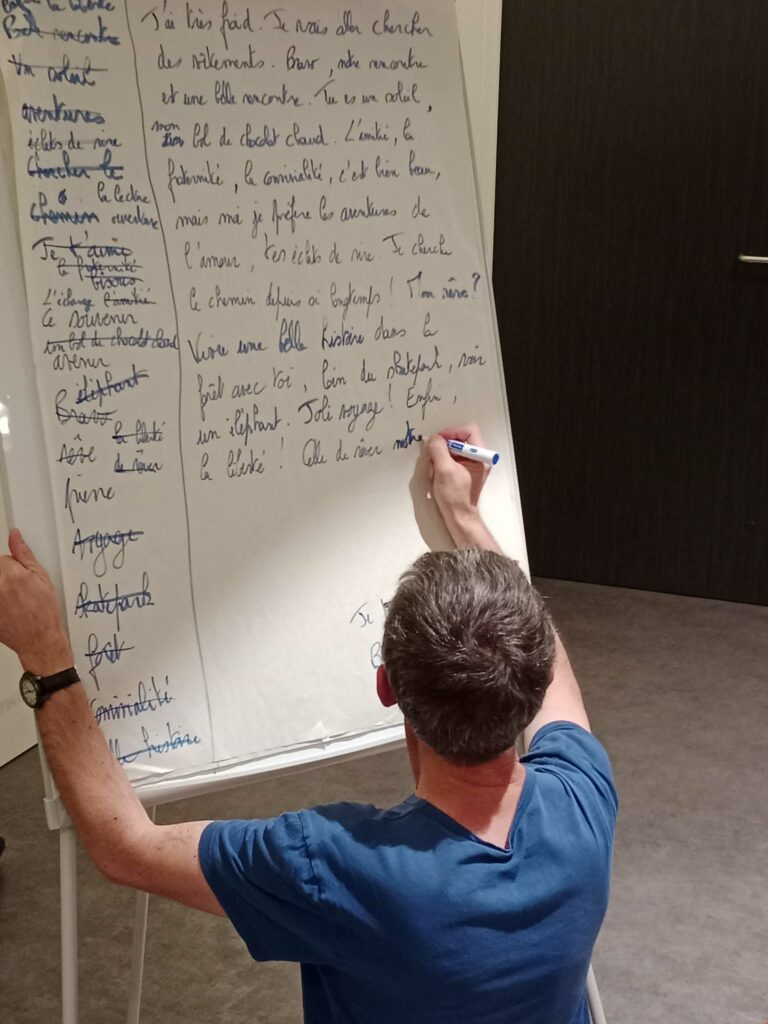 la liberté
Belle rencontre
Un soleil
aventures
éclats de rire
Chercher le
la lecture
Chemin ouverture
Je t'aime
la fraternité
bisous
L'échange l'amitié
Ce souvenir
ton bol de chocolat chaud
avenir
éléphant
Bravo
la liberté
rêve de rêver
pierre
Voyage
skatepark
forêt
Convivialité
belle histoire
J'ai très froid. Je vais aller chercher
des vêtements. Bravo, notre rencontre
est une belle rencontre. Tu es un soleil,
mon
bol de chocolat chaud. L'amitié, la
fraternité, la convivialité, c'est bien beau,
mais moi je préfère les aventures de
l'amour, tes éclats de rire. Je cherche
le chemin depuis si longtemps ! Mon rêve ?
Vivre une belle histoire dans la
forêt avec toi, loin du skatepark, voir
un éléphant. Joli voyage ! Enfin,
la liberté ! Celle de rêver notre
Je